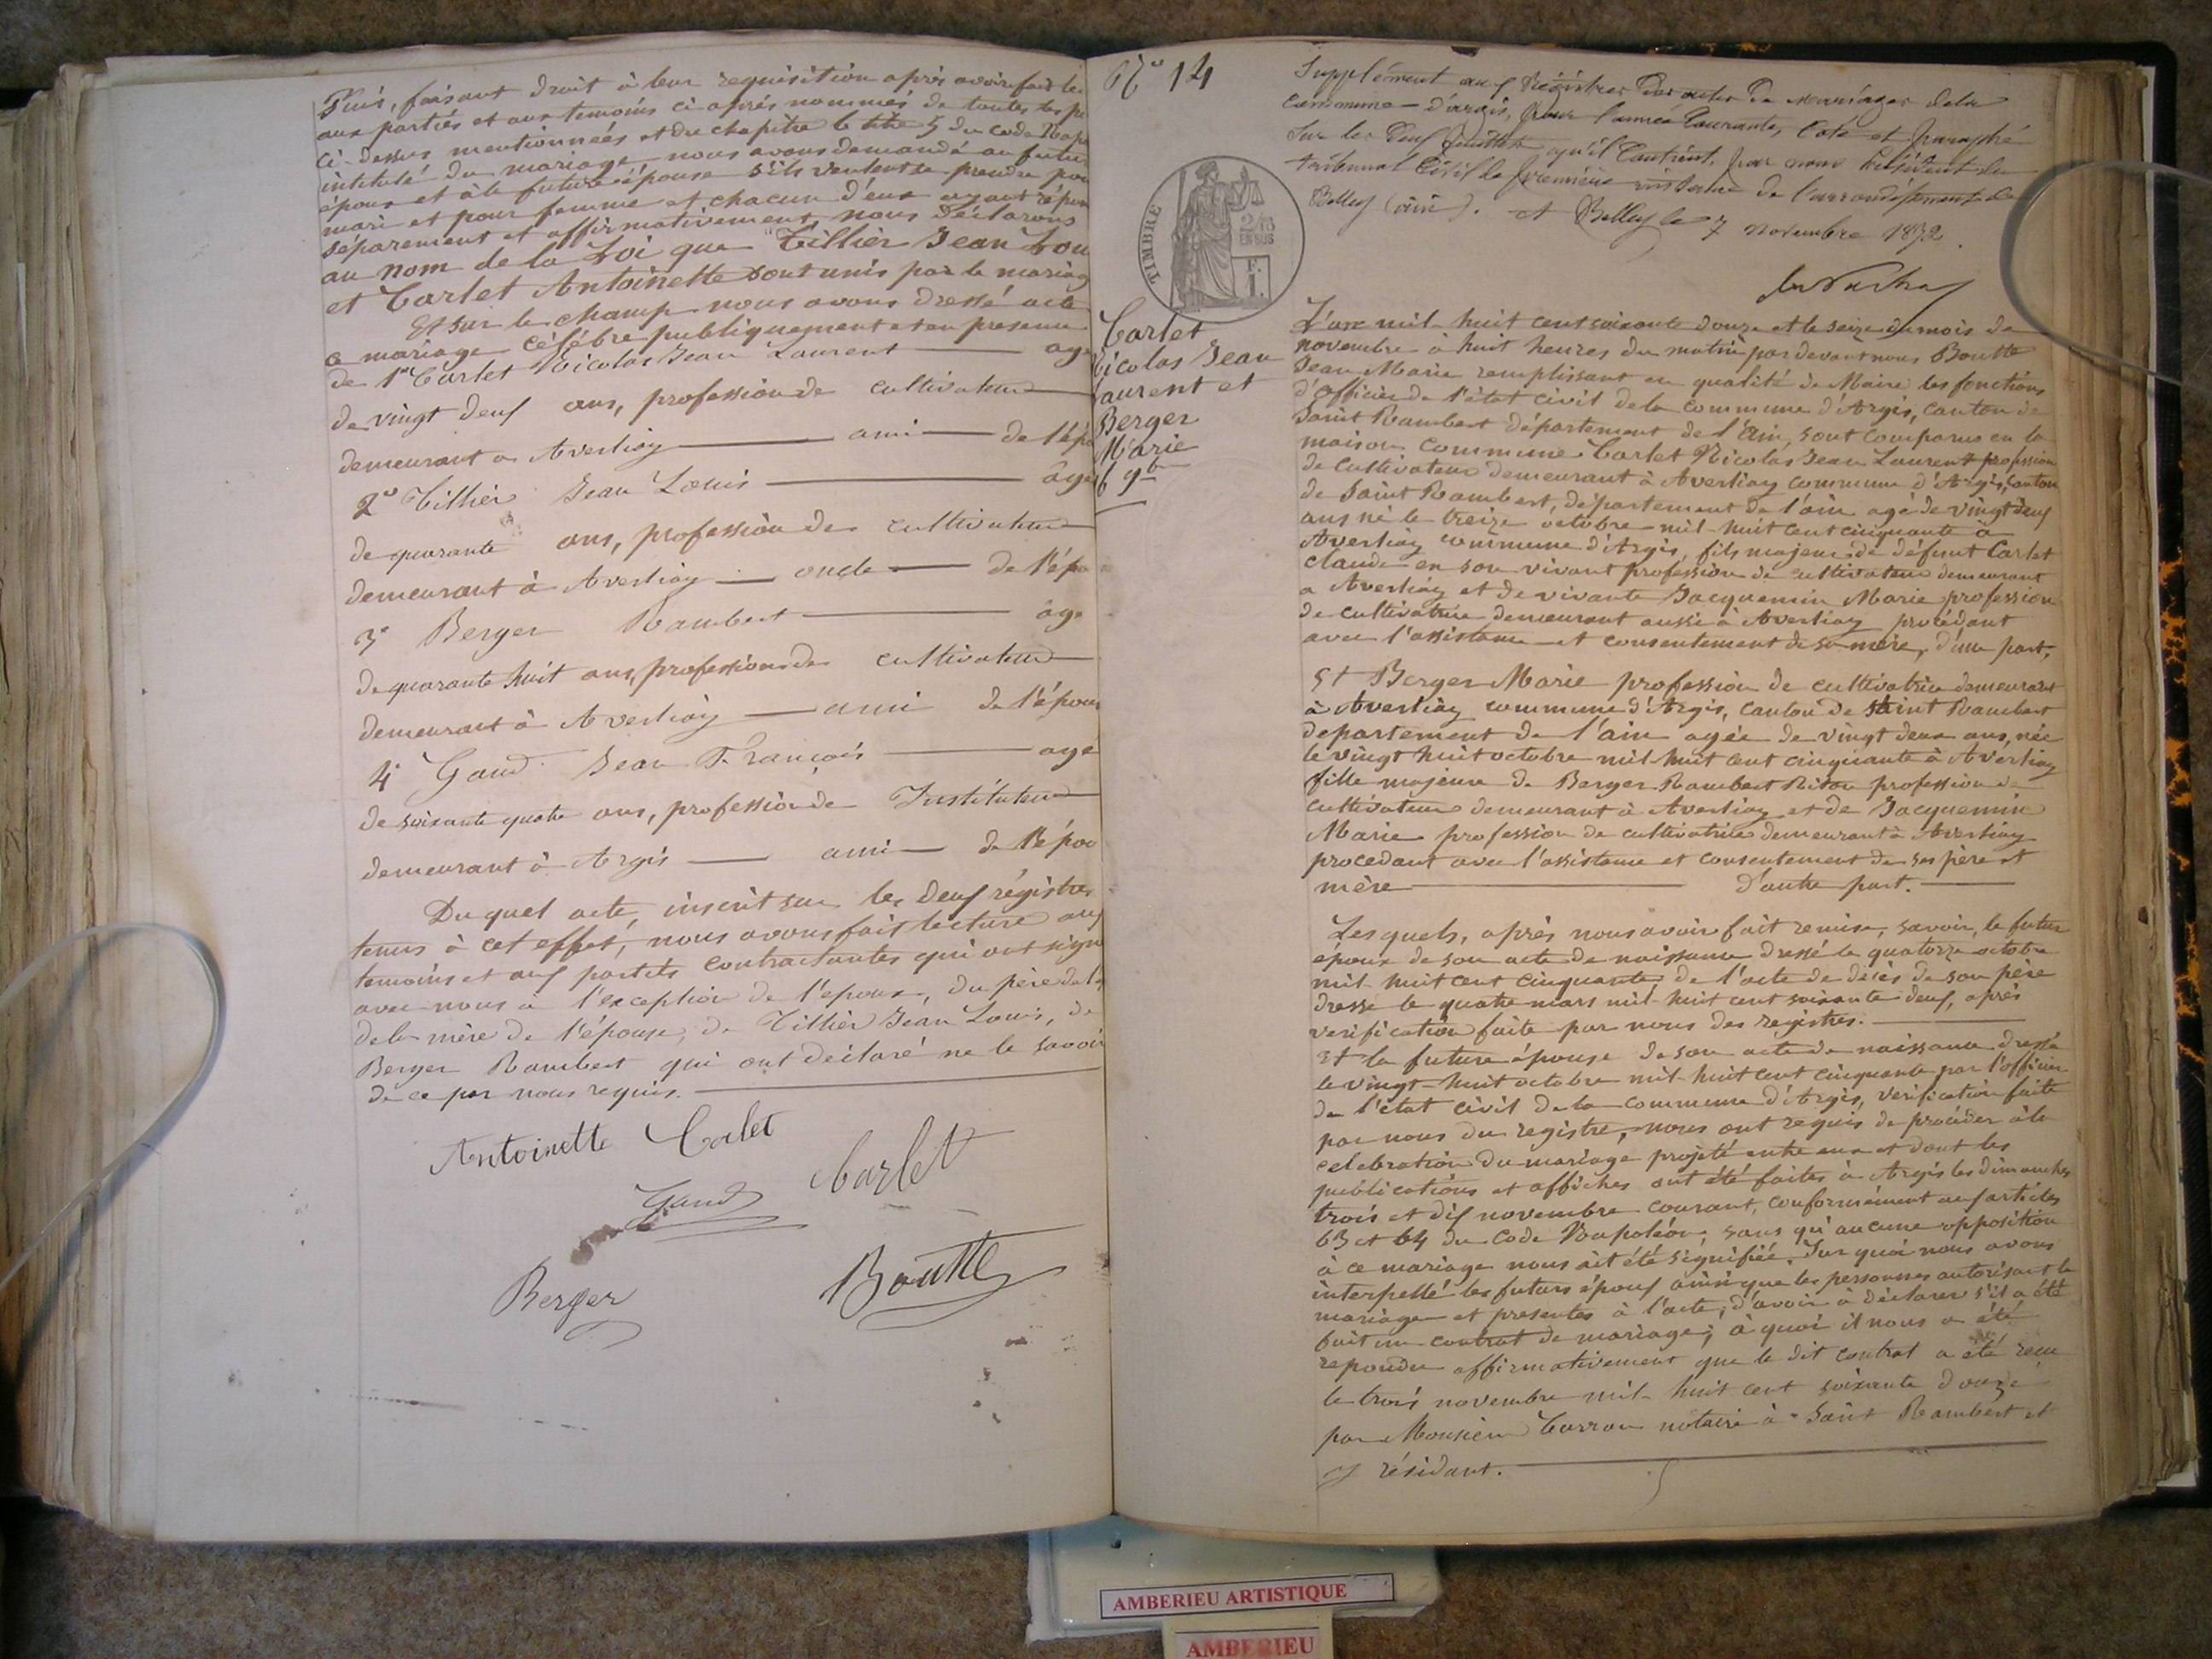 Puis, faisant droit à leur requisition après avoir fait le
aux partiés et aux temoins ci-après nommés de toutes les pi
ci-dessus mentionneés et du chapitre 6 titre 5 du code Nap
intitulé du mariage nous avons demandé au futur
époux et à la future épouse s'ils veulent se prendre pou
mari et pour femme et chacun d'eux ayant répon
séparement et affirmativement, nous déclarons
au nom de la Loi que Tillier Jean Lou
et Carlet Antoinette sont unis par le mariag
Et sur le champ nous avons dressé acte
ce mariage célébré publiquement et en presence
de 1° Carlet Nicolas Jean Laurent age
de vingt deux ans, profession de cultivateur
demeurant a Averliaz ami de l'épo
2° Tillier Jean Louis âgé
de quarante ans, profession de cultivateur
demeurant à Averliaz oncle de l'épo
3° Berger Rambert âge
de quarante huit ans, profession de cultivateur
demeurant à Averliaz ami de l'épous
4° Gaud Jean François age
de soixante quatre ans, profession de Instituteur
demeurant à Argis ami de l'épou
Du quel acte, inscrit sur les deux régistres
tenus à cet effet, nous avons fait lecture aux
temoins et aux partiés contractantes qui ont signé
avec nous à l'exception de l'epoux, du père
de la mère de l'épouse, de Tillier Jean Louis, de
Berger Rambert qui ont déclaré ne le savoir
de ce par nous requis.
Antoinette Carlet
Carlet
Gaud
Berger
Boutte
N° 14
Supplément aux Régistres des actes de mariages de la
commune d'argis, pour l'année courante, coté et paraphé
sur les deux feuillets qu'il contient, par nous Président du
tribunal Civil de première instance de l'arrondissement de
Belley (ain). et Belley le 7 novembre 1872.
TIMBRE
2/10
EN SUS
F.
1.
Carlet
Nicolas Jean
Laurent et
Berger
Marie
9bre
L'an mil huit cent soixante douze et le seize du mois de
novembre à huit heures du matin par devant nous Boutte
Jean Marie remplissant en qualité de Maire les fonctions
d'Officier de l'état civil de la commune d'Argis, canton de
Saint Rambert département de l'Ain, sont comparus en la
maison commune Carlet Nicolas Jean Laurent profession
de cultivateur demeurant à Averliaz commune d'Argis, canton
de Saint Rambert, département de l'ain agé de vingt deux
ans né le treize octobre mil huit cent cinquante à
Averliaz commune d'Argis, fils majeur de défunt Carlet
Claude en son vivant profession de cultivateur demeurant
a Averliaz et de vivante Jacquemin Marie profession
de cultivatrice demeurant aussi à Averliaz procédant
avec l'assistance et consentement de sa mère, d'une part,
Et Berger Marie profession de cultivatrice demeurant
à Averliaz commune d'Argis, canton de Saint Rambert
departement de l'ain agée de vingt deux ans, née
le vingt huit octobre mil huit cent cinquante à Averliaz
fille majeure de Berger Rambert profession de
cultivateur demeurant à Averliaz et de Jacquemin
Marie profession de cultivatrice demeurant à Averliaz
procedant avec l'assistance et consentement de ses père et
mère d'autre part.
Les quels, après nous avoir fait remise, savoir, le futur
époux de son acte de naissance dressé le quatorze octobre
mil huit cent cinquante, de l'acte de décès de son père
dressé le quatre mars mil huit cent soixante deux, après
verification faite par nous des régistres.
Et la future épouse de son acte de naissance dressé
le vingt-huit octobre mil huit cent cinquante par l'officier
de l'état civil de la commune d'Argis, vérification faite
par nous du registre, nous ont requis de procéder à la
celebration du mariage projeté entre eux et dont les
publications et affiches ont été faites à Argis les dimanches
trois et dix novembre courant, conformément aux articles
63 et 64 du Code Napoléon, sans qu'aucune opposition
à ce mariage nous ait été signifiée. Sur quoi nous avons
interpellé les futurs époux ainsi que les personnes autorisant le
mariage et presentes à l'acte, d'avoir à déclarer s'il a été
fait un contrat de mariage; à quoi il nous a été
repondu affirmativement que le dit contrat a été reçu
le trois novembre mil huit cent soixante douze
par Monsieur Carron notaire à Saint Rambert et
y résidant.
AMBERIEU ARTISTIQUE
AMBERIEU